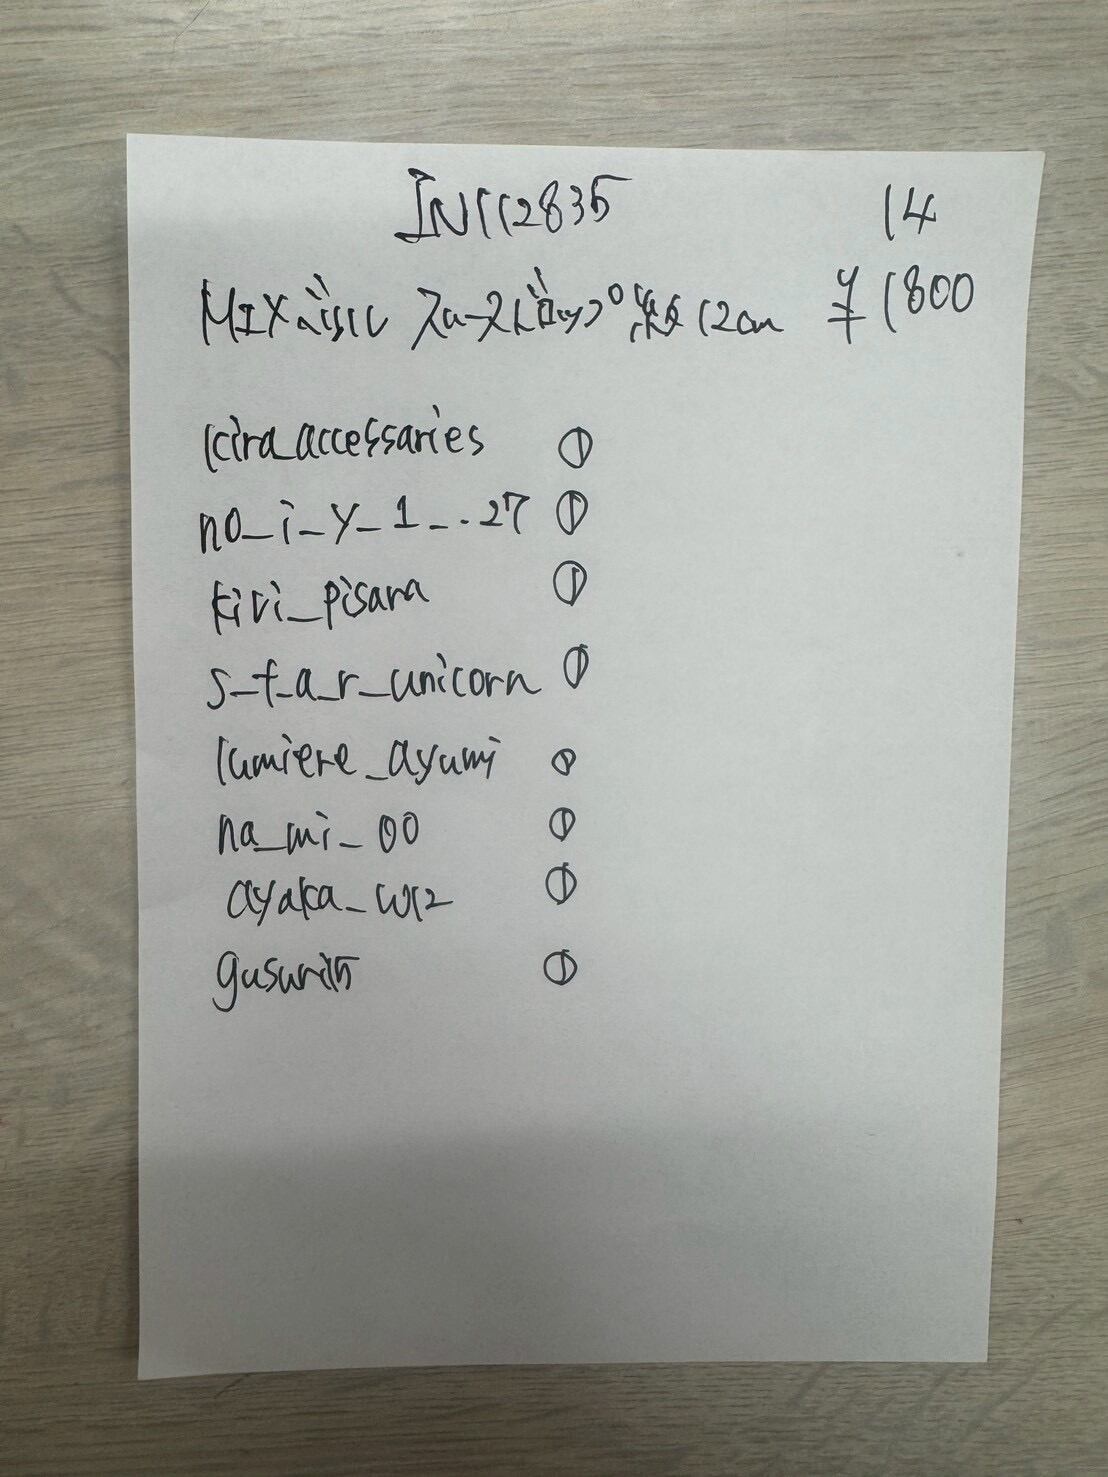 IN112835 14
MIX ベリル スーストロップ 数 12cm ¥1800
kira_accessaries ①
no_i_y_1_..27 ①
kivi_pisara ①
s_t_a_r_unicorn ①
lumiere_ayumi ①
na_mi_00 ①
ayaka_w12 ①
gusuri15 ①